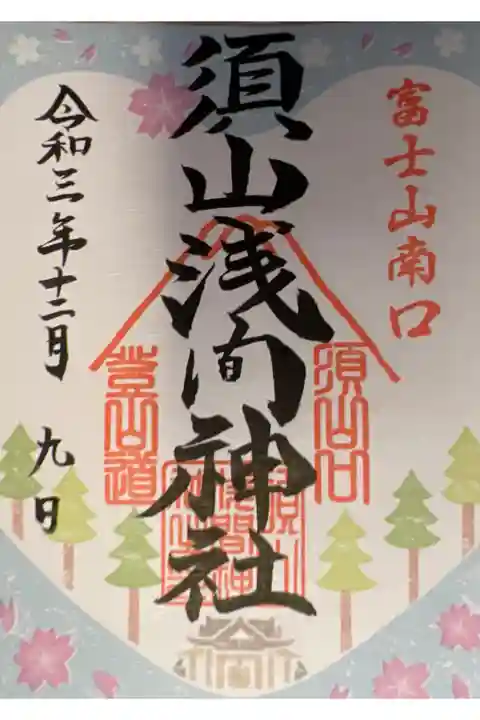 富士山南口
須山浅間神社
須山口
登山道
令和三年十二月 九日